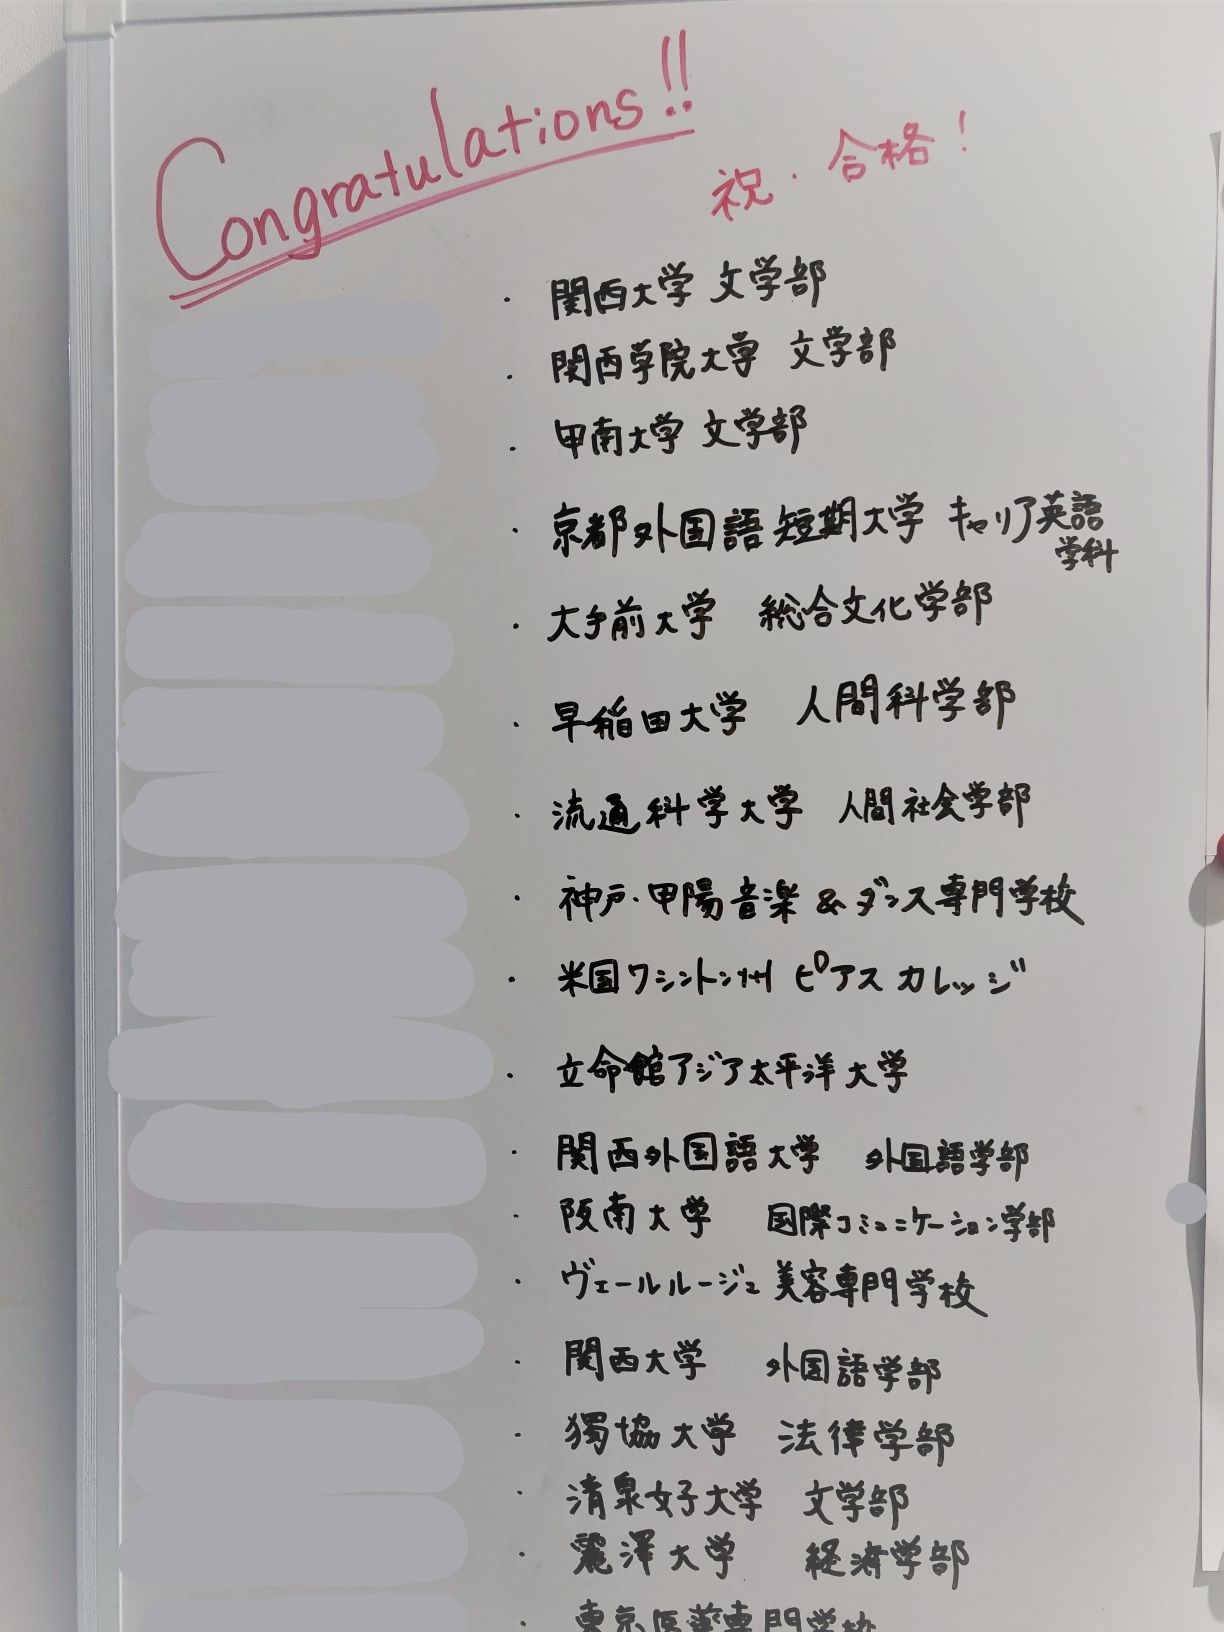 Congratulations!!
祝・合格!
・関西大学 文学部
・関西学院大学 文学部
・甲南大学 文学部
・京都外国語短期大学 キャリア英語
学科
・大手前大学 総合文化学部
・早稲田大学 人間科学部
・流通科学大学 人間社会学部
・神戸・甲陽音楽&ダンス専門学校
・米国ワシントン州 ピアスカレッジ
・立命館アジア太平洋大学
・関西外国語大学 外国語学部
・阪南大学 国際コミュニケーション学部
・ヴェールルージュ美容専門学校
・関西大学 外国語学部
・獨協大学 法律学部
・清泉女子大学 文学部
・麗澤大学 経済学部
・東京医薬専門学校